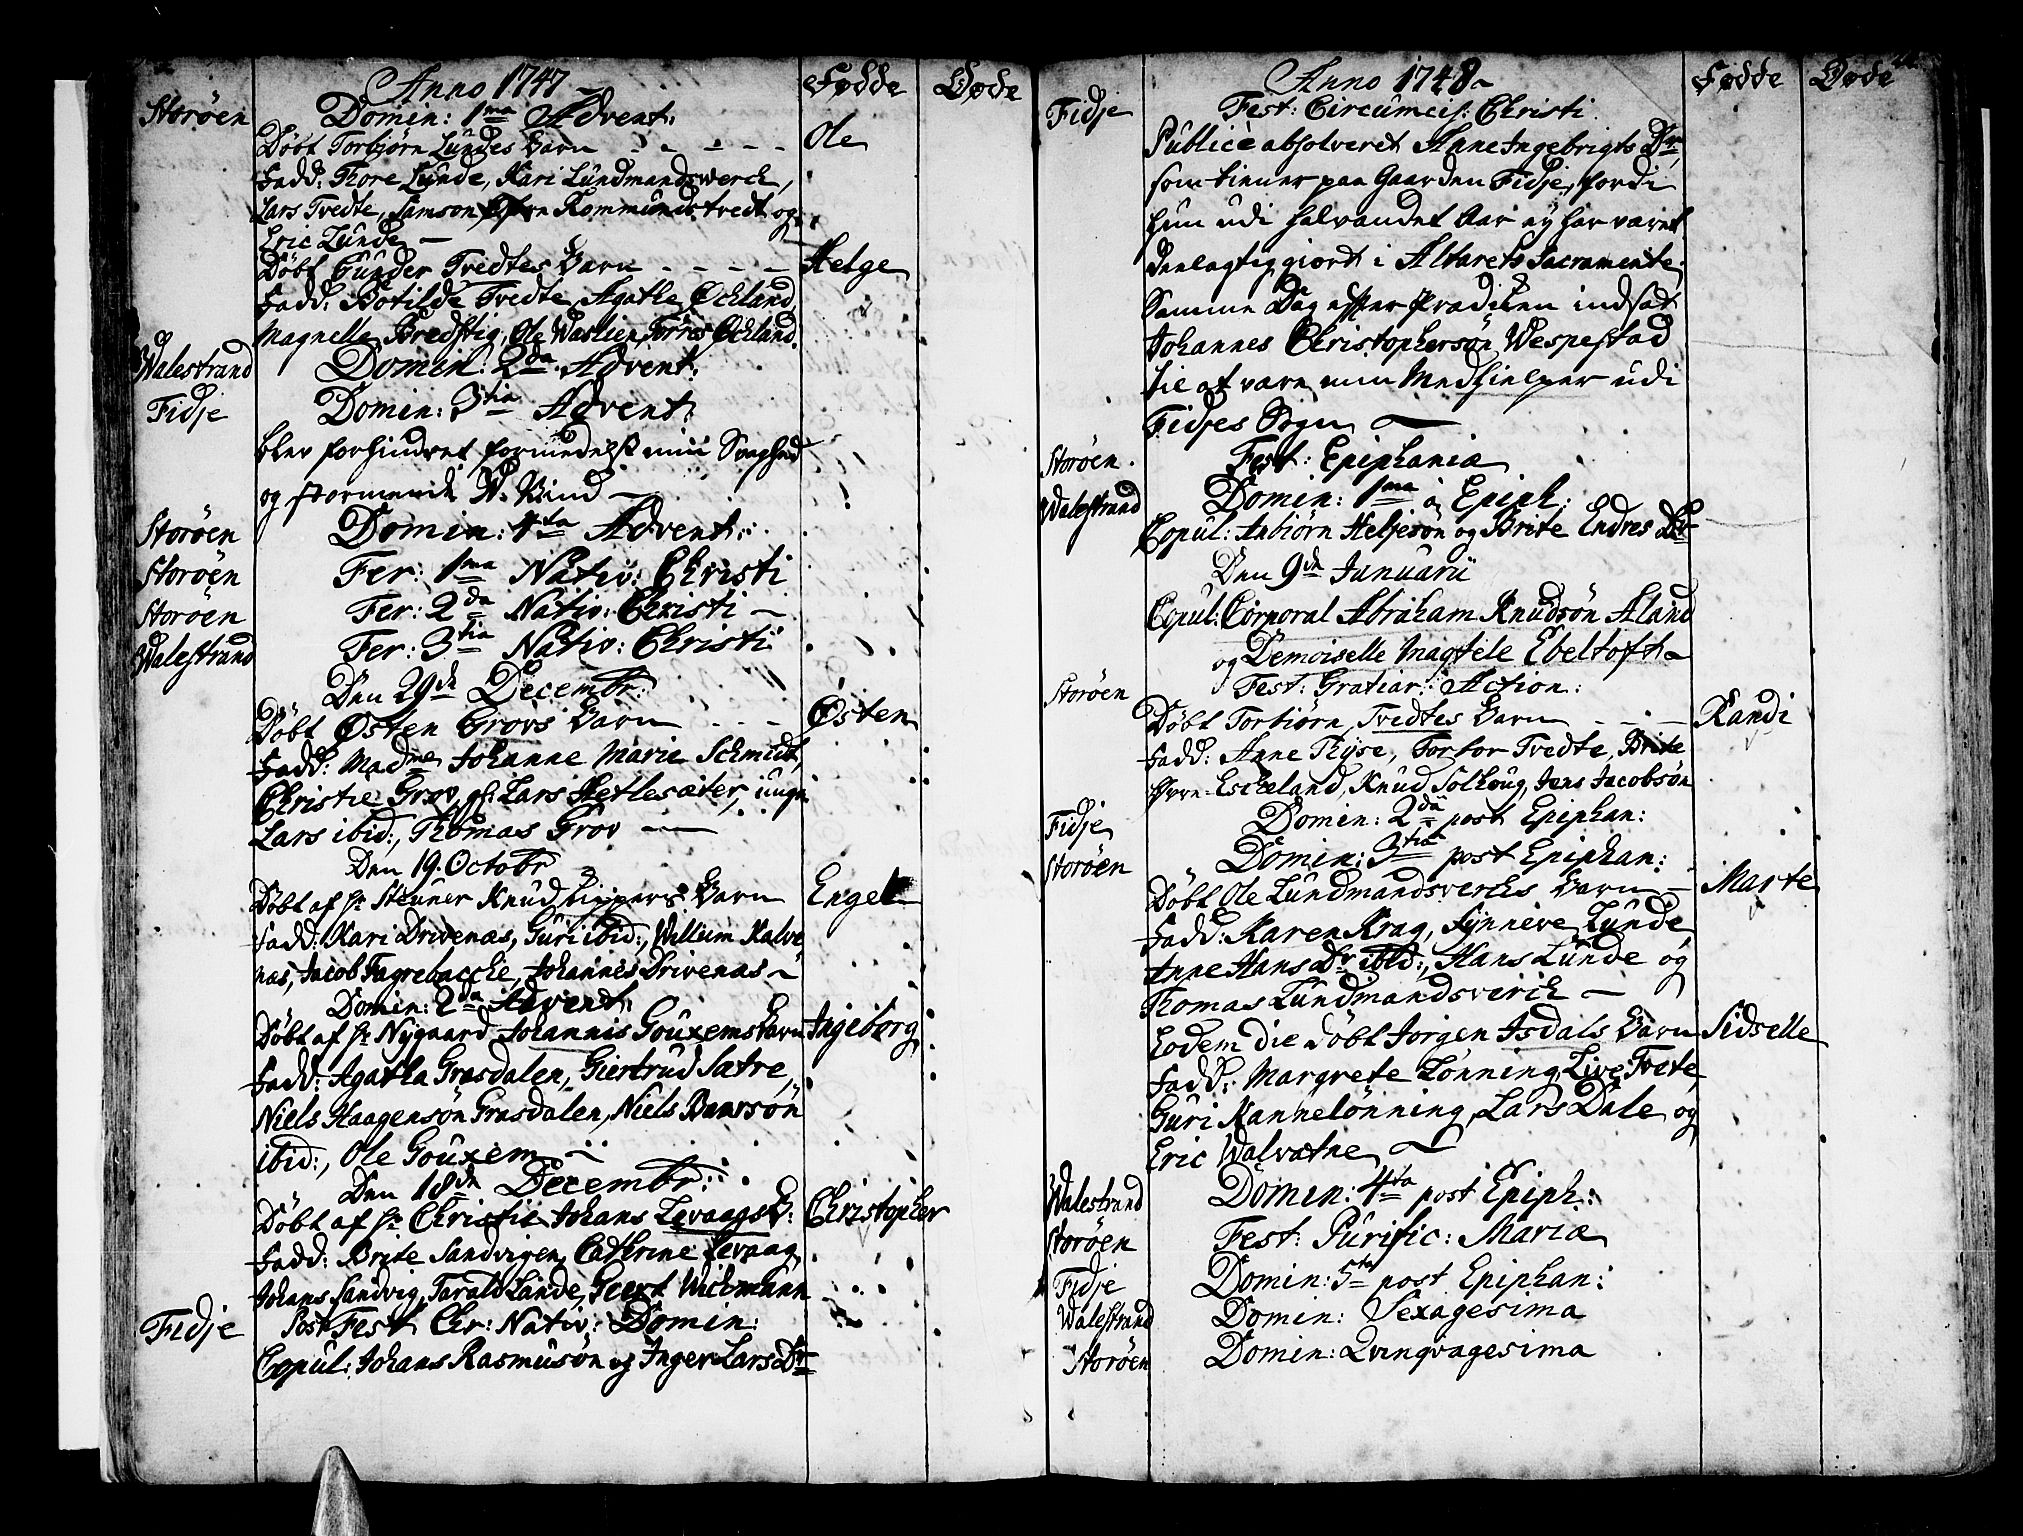 Anno 1747 Fødde Døde
Storøen Domin: 1ma Advent:
Døbt Torbjørn Lundes Barn - - - - Ole
Fadd: Thore Lunde, Kari Lundmandswerck,
Lars Tredte, Samson Rommundstredt og
Eric Lunde
Døbt Gunder Tredtes Barn - - - - Helge
Fadd: Botilde Tredte, Agathe Öckland,
Magnelle Bredstig, Ole Waslien, Torris Öckland.
Walestrand Domin: 2da Advent:
Fidje Domin: 3tia Advent:
blev forhindret formedelst min Svaghed
og stormende W. Vind
Storøen Domin: 4ta Advent:
Storøen Fer: 1ma Nativ: Christi
Storøen Fer: 2da Nativ: Christi
Walestrand Fer: 3tia Nativ: Christi
Den 29de Decembr:
Døbt Østen Grovs Barn - - - Østen
Fadd: Madme Johanne Marie Schmidt,
Christie Grov, gl: Lars Hetlesæter, unge
Lars ibid:, Thomas Grov
Den 19. Octobr
Døbt af Hr Steuner Knud Barn Engel
Fadd: Kari Drivenæs, Guri ibid:, Willum Kalve
næs, Jacob Fagrebacche, Johannes Drivenæs
Domin: 2da Advent:
Døbt af Hr Nygaard Johannis Gouxems Barn Ingeborg
Fadd: Agatha Grasdalen, Giertrud Sætre,
Niels Haagensøn Grasdalen, Niels Baarsøn
ibid:, Ole Gouxem
Den 18de Decembr:
Døbt af Hr Christie Johans Levaags B: Christopher
Fadd: Brite Sandvigen, Cathrine Levaag,
Johans Sandvig, Tarald Lande, Geert Wichmann
Fidje Post Fest Chr: Nativ: Domin:
Copul: Johans Rasmusøn og Inger Lars Dr
Anno 1748 Fødde Døde
Fidje Fest: Circumcis: Christi
Publicè absolveret Anne Ingebrigts Dr
som tiener paa Gaarden Fidje, fordi
hun udi halvandet Aar ey har været
deelagtiggiort i Altarets Sacramente.
Samme Dag efter Prædiken indsat
Johannes Christophersøn Wespestad
til at være min Medhielper udi
Fidjes Sogn
Storøen Fest: Epiphaniæ
Walestrand Domin: 1ma à Epiph:
Copul: Anbiørn Heljesøn og Brite Endres Dr
Den 9de Januarii
Copul: Corporal Abraham Knudsøn Aland
og Demoiselle Magtele Ebeltoft
Storøen Fest: Gratiar: Action:
Døbt Torbiørn Tredtes Barn - - - Randi
Fadd: Anne Thyse, Tortor Tredte, Brite
Eskeland, Knud Solhoug, Jens Jacobsøn
Fidje Domin: 2da post Epiphan:
Storøen Domin: 3tia post Epiphan:
Døbt Ole Lundmandsvercks Barn Marte
Fadd: Karen Krag, Synneve Lunde
Anne Hans Dr ibid:, Hans Lunde og
Thomas Lundmandsverck
Eodem die døbt Jørgen Isdals Barn Sidselle
Fadd: Margrete Lønning, Live Trete,
Guri Kannelønning, Lars Dale og
Eric Walvatne
Walestrand Domin: 4ta post Epiph:
Storøen Fest: Purific: Mariæ
Fidje Domin: 5ta post Epiphan:
Walestrand Domin: Sexagesima
Storøen Domin: Qvinqvagesima